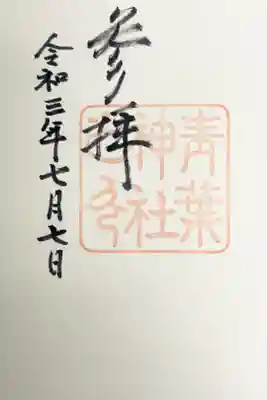 参拝
青葉
神社
之印
令和三年七月七日